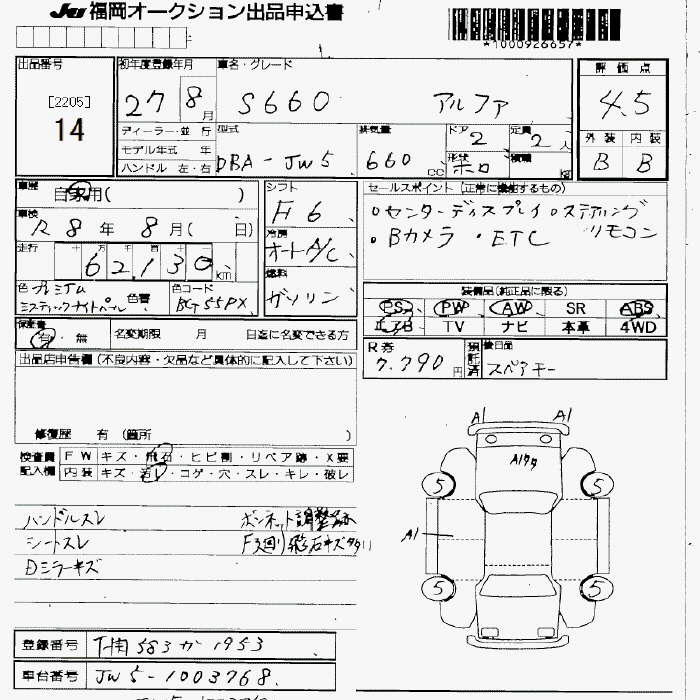 JU 福岡オークション出品申込書
*1000926657*
出品番号
[2205]
14
初年度登録年月
27 8月
車名・グレード
S660 アルファ
評価点
4.5
外装 内装
B B
ディーラー・並行
モデル年式 年
ハンドル 左・右
型式
DBA-JW5
排気量
660 cc
ドア
2
定員
2人
形状
ホロ
積載
kg
車歴
自家用( )
車検
R8年 8月( 日)
走行
十万千百十
62,130 km
色 プレミアム
ミスティックナイトパール
色替
色コード
BG55PX
シフト
F6
冷房
オートA/C
燃料
ガソリン
セールスポイント (正常に機能するもの)
・センターディスプレイ ・ステアリング
・Bカメラ ・ETC リモコン
装備品(純正品に限る)
PS PW AW SR ABS
エアB TV ナビ 本革 4WD
R券
7,790円
預託済
後日品
スペアキー
保証書
有・無
名変期限 月 日迄に名変できる方
出品店申告欄 (不良内容・欠品など具体的に記入して下さい)
修復歴 有 (箇所 )
検査員記入欄
FW キズ・飛石・ヒビ割・リペア跡・X要
内装 キズ・汚レ・コゲ・穴・スレ・キレ・破レ
ハンドルスレ ボンネット調整跡
シートスレ F廻り飛石キズタッチ
Dミラーキズ
A1 A1
A1タタ
5 5
A1
5 5
登録番号
583 か 1953
車台番号
JW5-1003768